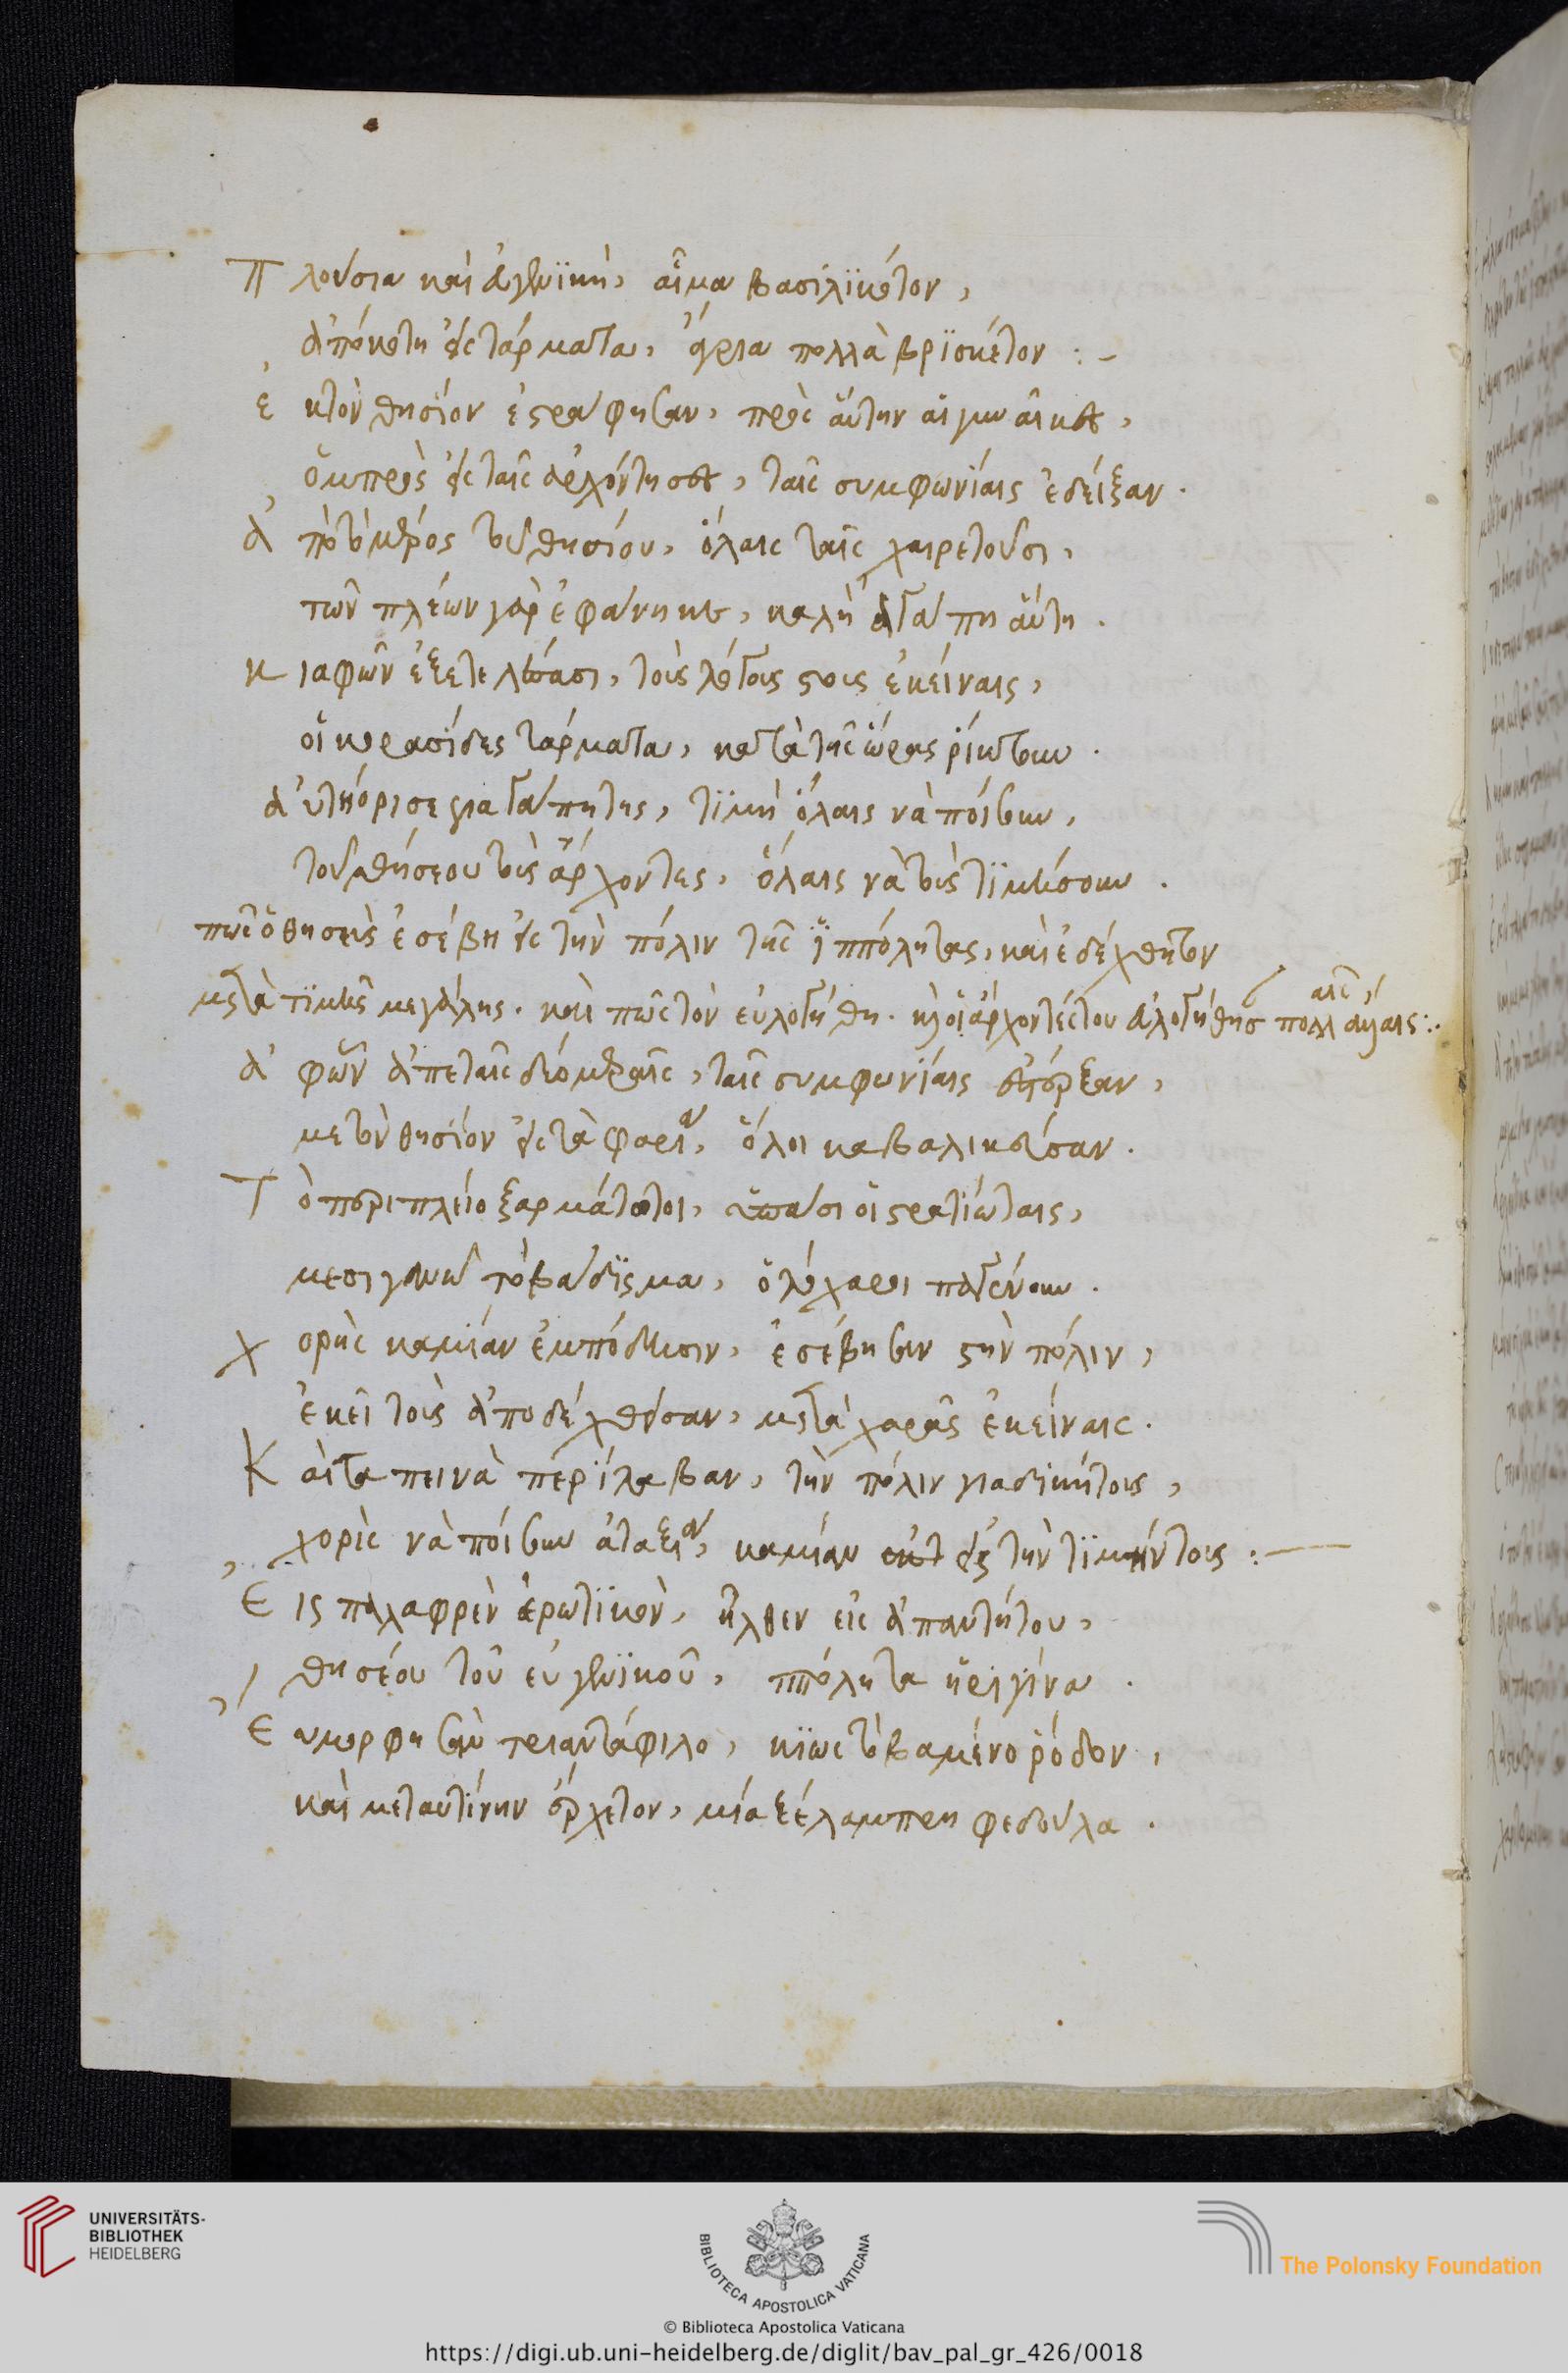 Πλούσια καὶ εὐγενϊκὴ, αἷμα βασιλϊκότον,
ἀπόκοτη εἰς τάρματα, ἄγρια πολλὰ βρϊσκέτον :-
ἐκτὸν θησίον ἐστράφησαν, πρὸς αὕτην αἱ γυναῖκες,
ὀμπρὸς εἰς ταῖς ἀρχόντησες, ταῖς συμφωνίαις ἐδείξαν.
ἀπὸ τὸ μέρος τοῦ θησίου, ὅλαις ταῖς χαιρετοῦσι,
τῶν πλέων γὰρ ἐφαίνηκε, καλὴ ἀγάπη αὕτη.
κιαφῶν ἐξετελειώσασι, τοὺς λόγους τους ἐκείναις,
οἱ κορασίδες τάρματα, κατὰ τῆς ὥρας ρίκτουν.
ἀυτὴ ὅρισε γιαγάπη της, τϊμὴ ὅλαις νὰ ποίσουν,
τοῦ θήσεου τοὺς ἄρχοντες, ὅλαις νὰ τοὺς τϊμήσουν.
πῶς ὁ θησεὺς ἐσέβη εἰς τὴν πόλιν τῆς ϊππόλητας, καὶ ἐδέχθη τον
μετὰ τϊμῆς μεγάλης. καὶ πῶς τὸν εὐλογήθη. καὶ οἱ ἄρχοντές του εὐλογήθησ πολλαῖς ἀπ αὐταις :.
ἀφῶν ἀπεταῖς διόμεραῖς, ταῖς συμφωνίαις στέρξαν,
με τὸν θησίον εἰς τὰ φαριὰ, ὅλοι καβαλικεῦσαν.
Τὸ περιπλείο ξαρμάτωτοι, ὑπᾶσι οἱ στρατιώταις,
με σιγανὸ τὸ βάδϊσμα, ὁλόχαροι παγένουν.
χορῆς καμίαν ἐμπόδισιν, ἐσέβησαν στὴν πόλιν,
ἐκεῖ τοὺς ἀποδέχθησαν, μετὰ χαρᾶς ἐκείναις.
Καὶ ταπεινὰ περϊλαβαν, τὴν πόλιν γιαδικήτους,
χορὶς νὰ ποίσουν ἀταξιὰ, καμίαν εἰς τὴν τϊμήντους :—
Εἰς παλαφρὲν ἐρωτϊκὸν, ἦλθεν εἰς ἀπαντήτου,
θησέου τοῦ εὐγενϊκοῦ, ππόλητα ἡ ρίγινα.
Ἐυμορφησὰν τριαντάφιλο, κϊως τὸ βαμένο ρόδον,
καὶ μεταυτίνην ἔρχετον, μία ξέλαμπρη φεδούλα.
UNIVERSITÄTS-
BIBLIOTHEK
HEIDELBERG
BIBLIOTECA APOSTOLICA VATICANA
The Polonsky Foundation
© Biblioteca Apostolica Vaticana
https://digi.ub.uni-heidelberg.de/diglit/bav_pal_gr_426/0018